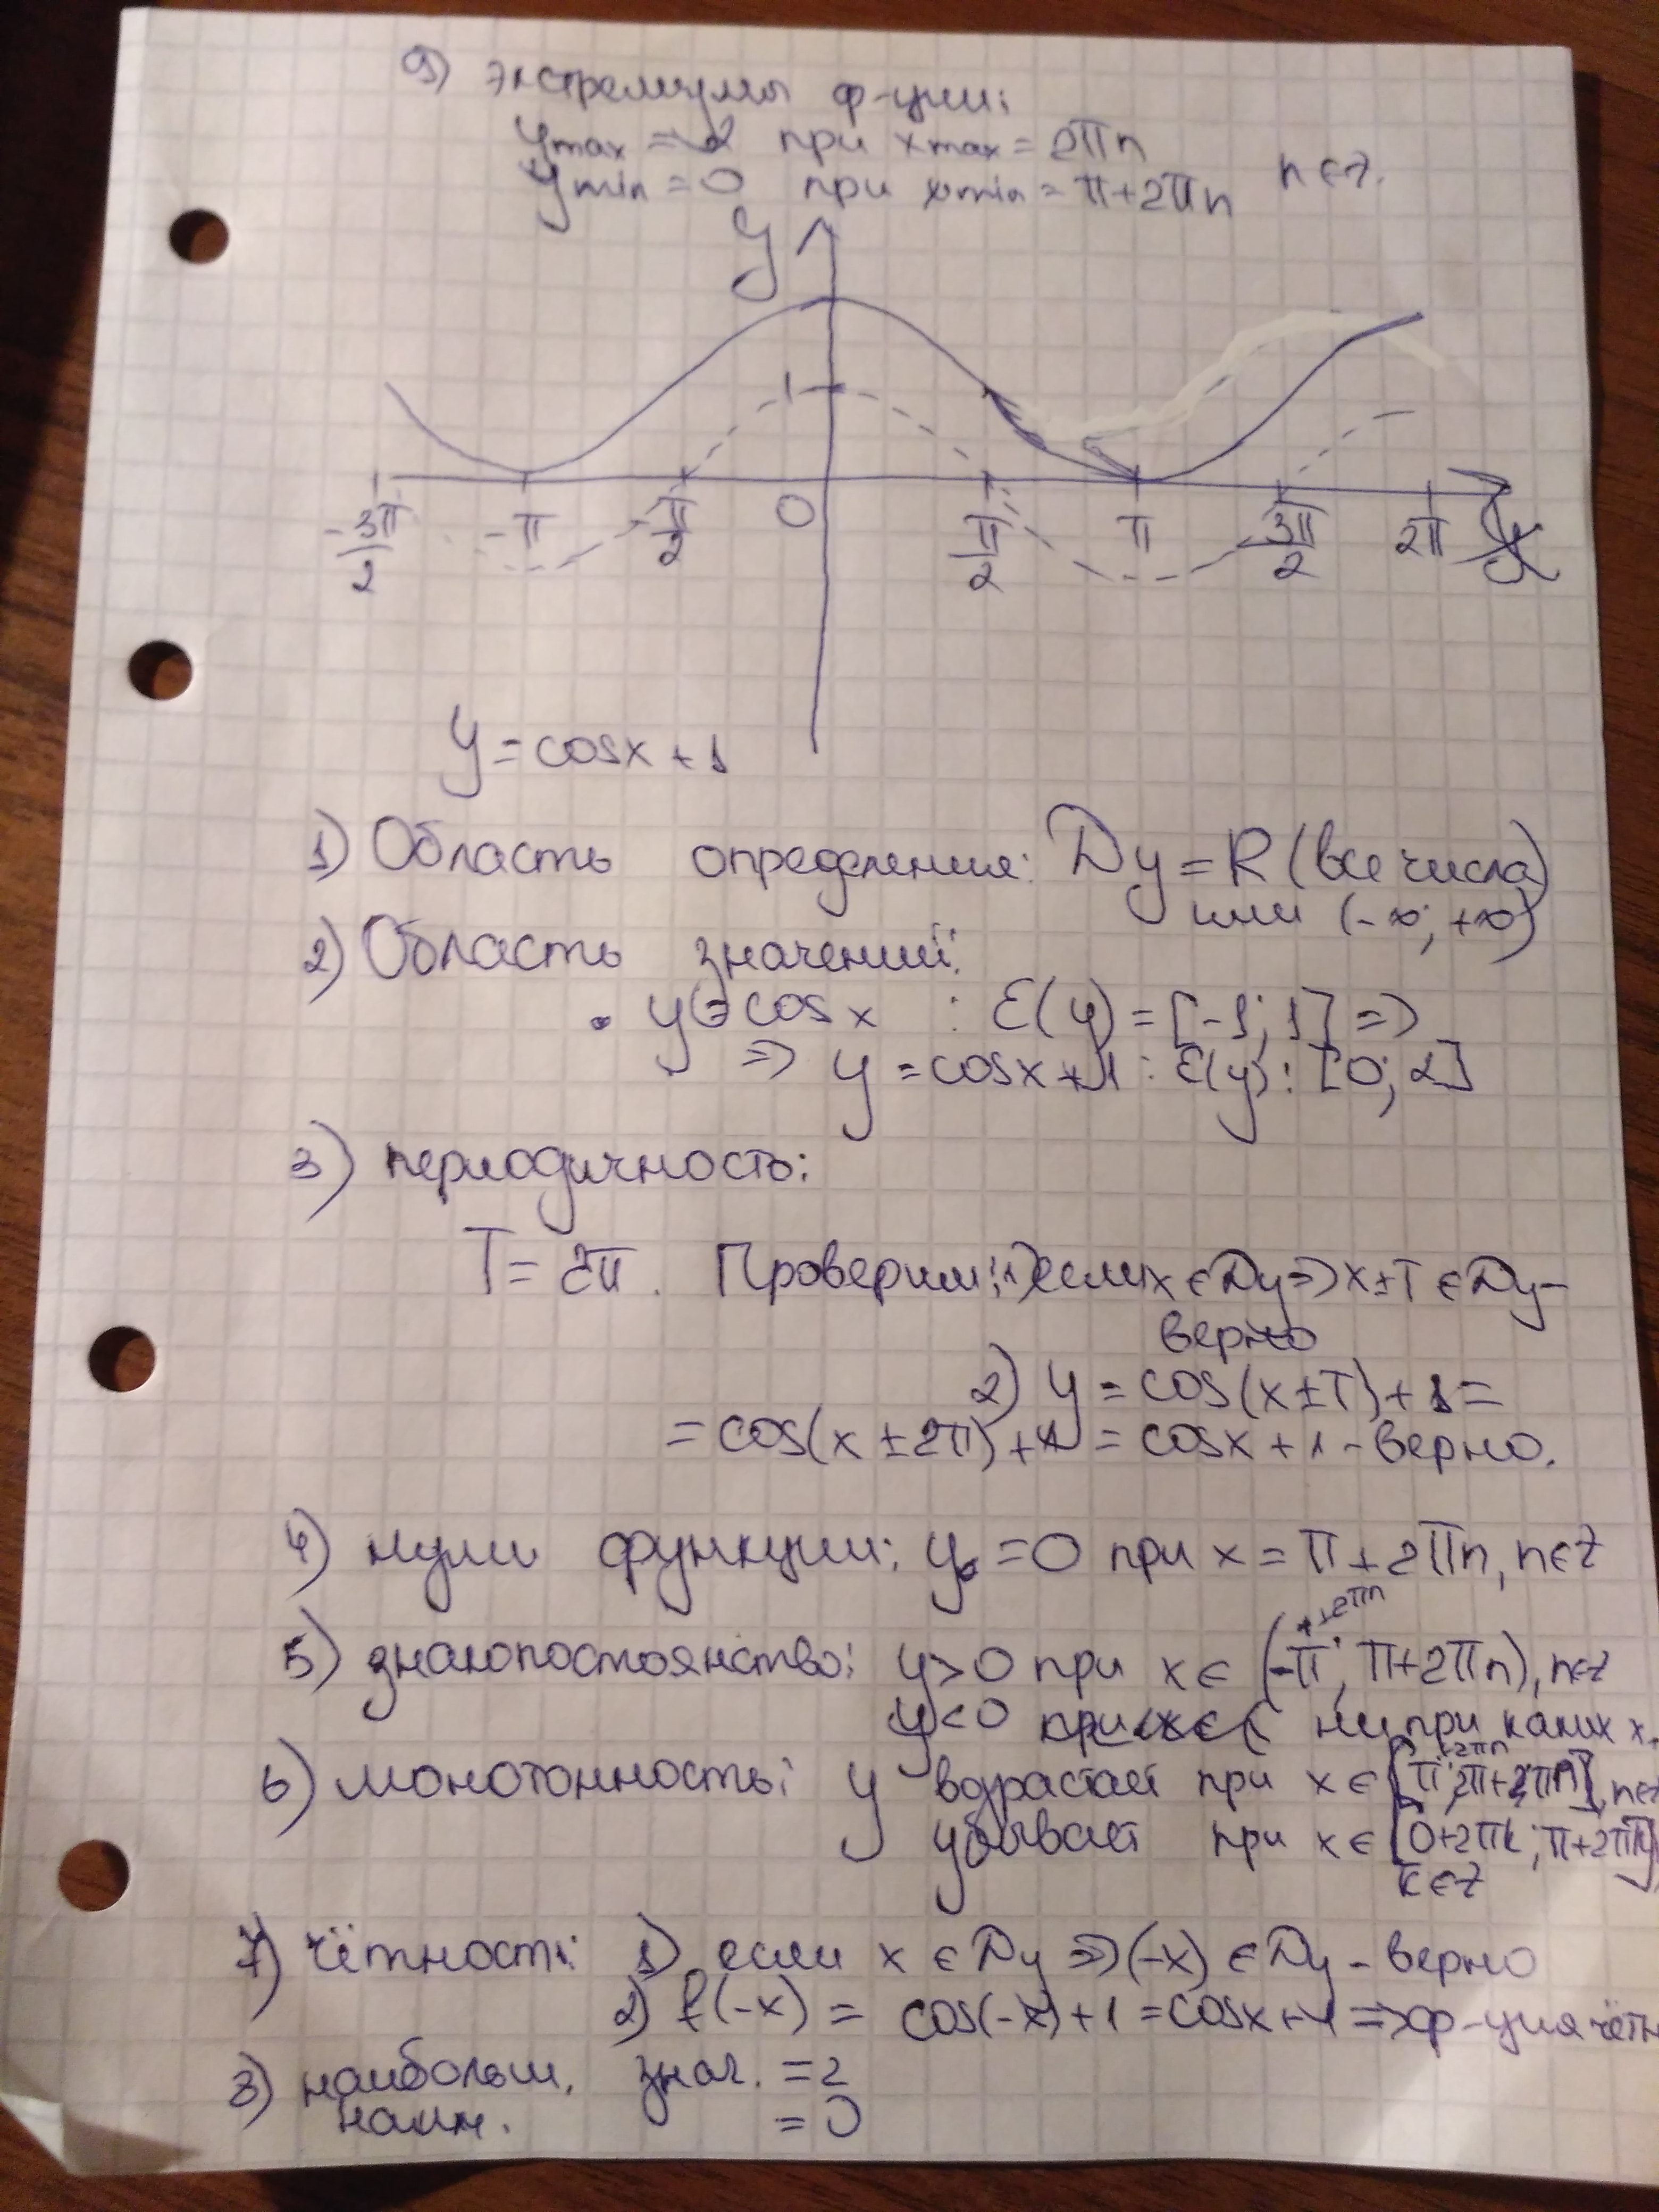 9) экстремумы ф-ции:
y max = 2 при x max = 2πn
y min = 0 при x min = π+2πn n∈Z.
y
1
-3π/2 -π -π/2 0 π/2 π 3π/2 2π x
y = cosx + 1
1) Область определения: Dy = R (все числа)
или (-∞; +∞)
2) Область значений:
• y = cos x : E(y) = [-1; 1] =>
=> y = cosx + 1 : E(y): [0; 2]
3) периодичность:
T = 2π. Проверим: 1) если x ∈ Dy => x±T ∈ Dy -
верно
2) y = cos(x±T) + 1 =
= cos(x ± 2π) + 1 = cosx + 1 - верно.
4) нули функции: y = 0 при x = π + 2πn, n∈Z
5) знакопостоянство: y > 0 при x ∈ (-π+2πn; π+2πn), n∈Z
y < 0 ни при каких x.
6) монотонность: y возрастает при x ∈ [π+2πn; 2π+2πn], n∈Z
убывает при x ∈ [0+2πk; π+2πk]
k∈Z
7) чётность: 1) если x ∈ Dy => (-x) ∈ Dy - верно
2) f(-x) = cos(-x) + 1 = cosx + 1 => ф-ция чётн
8) наибольш. знач. = 2
наим. = 0